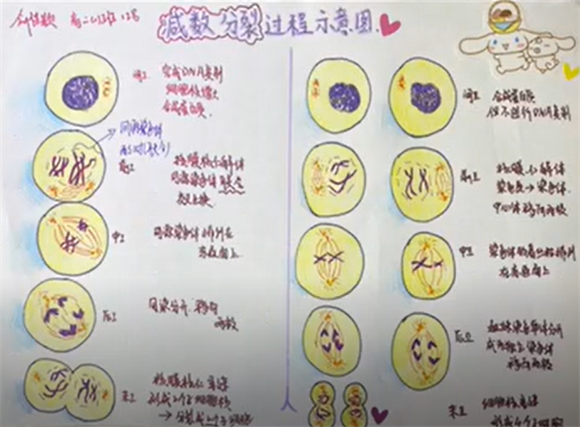 减数分裂过程示意图
间I 完成DNA复制
细胞核增大
合成蛋白质
同源染色体
前I 核膜核仁解体
同源染色体联会
交叉互换
中I 同源染色体排列在
赤道面上
后I 同染分开,移向
两极
末I 核膜核仁重建
形成2个子细胞核
→分裂成2个子细胞
间II 合成蛋白质
但不进行DNA复制
前II 核膜核仁解体
染色质→染色体
中心体移向两极
中II 染色体的着丝粒排列
在赤道面上
后II 姐妹染色单体分开
成为独立染色体
移向两极
末II 细胞核重建
形成4个子细胞